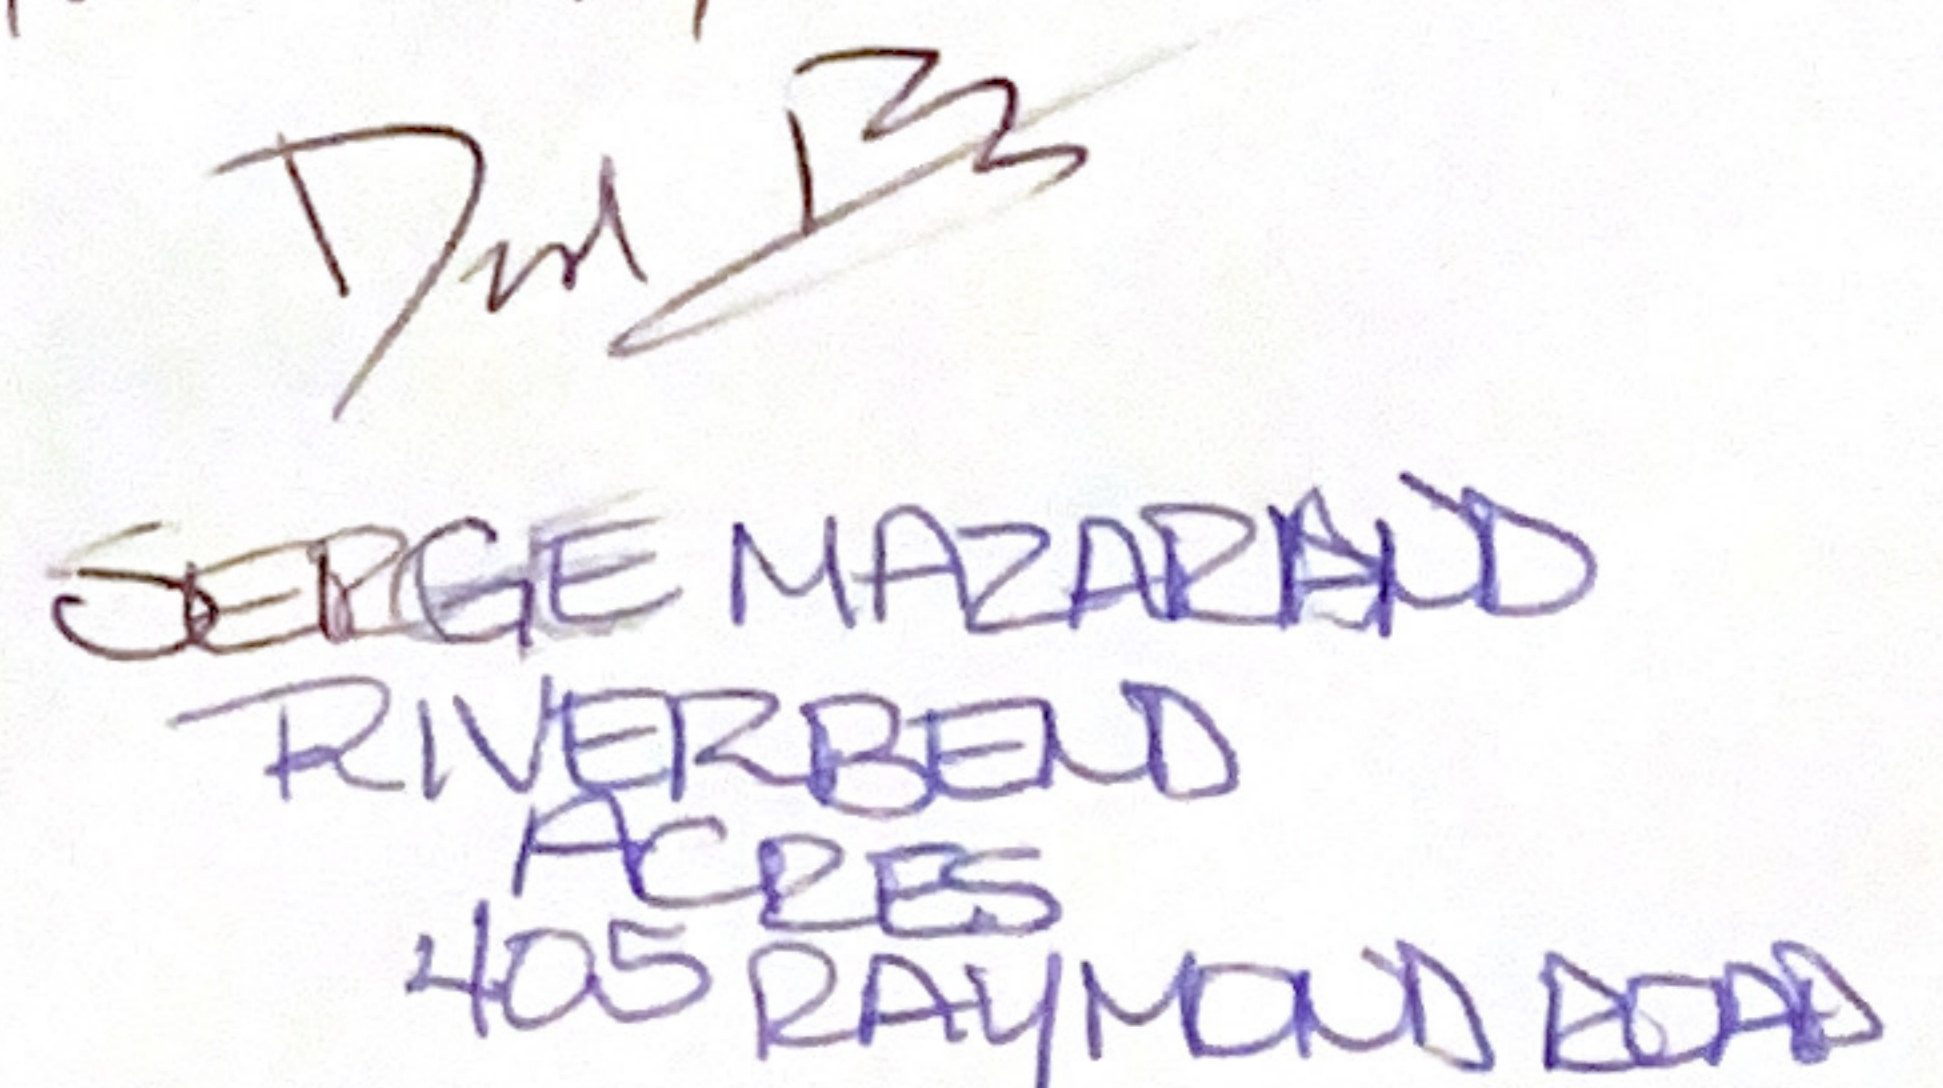 SERGE MAZARAND
RIVERBEND
ACRES
405 RAYMOND ROAD